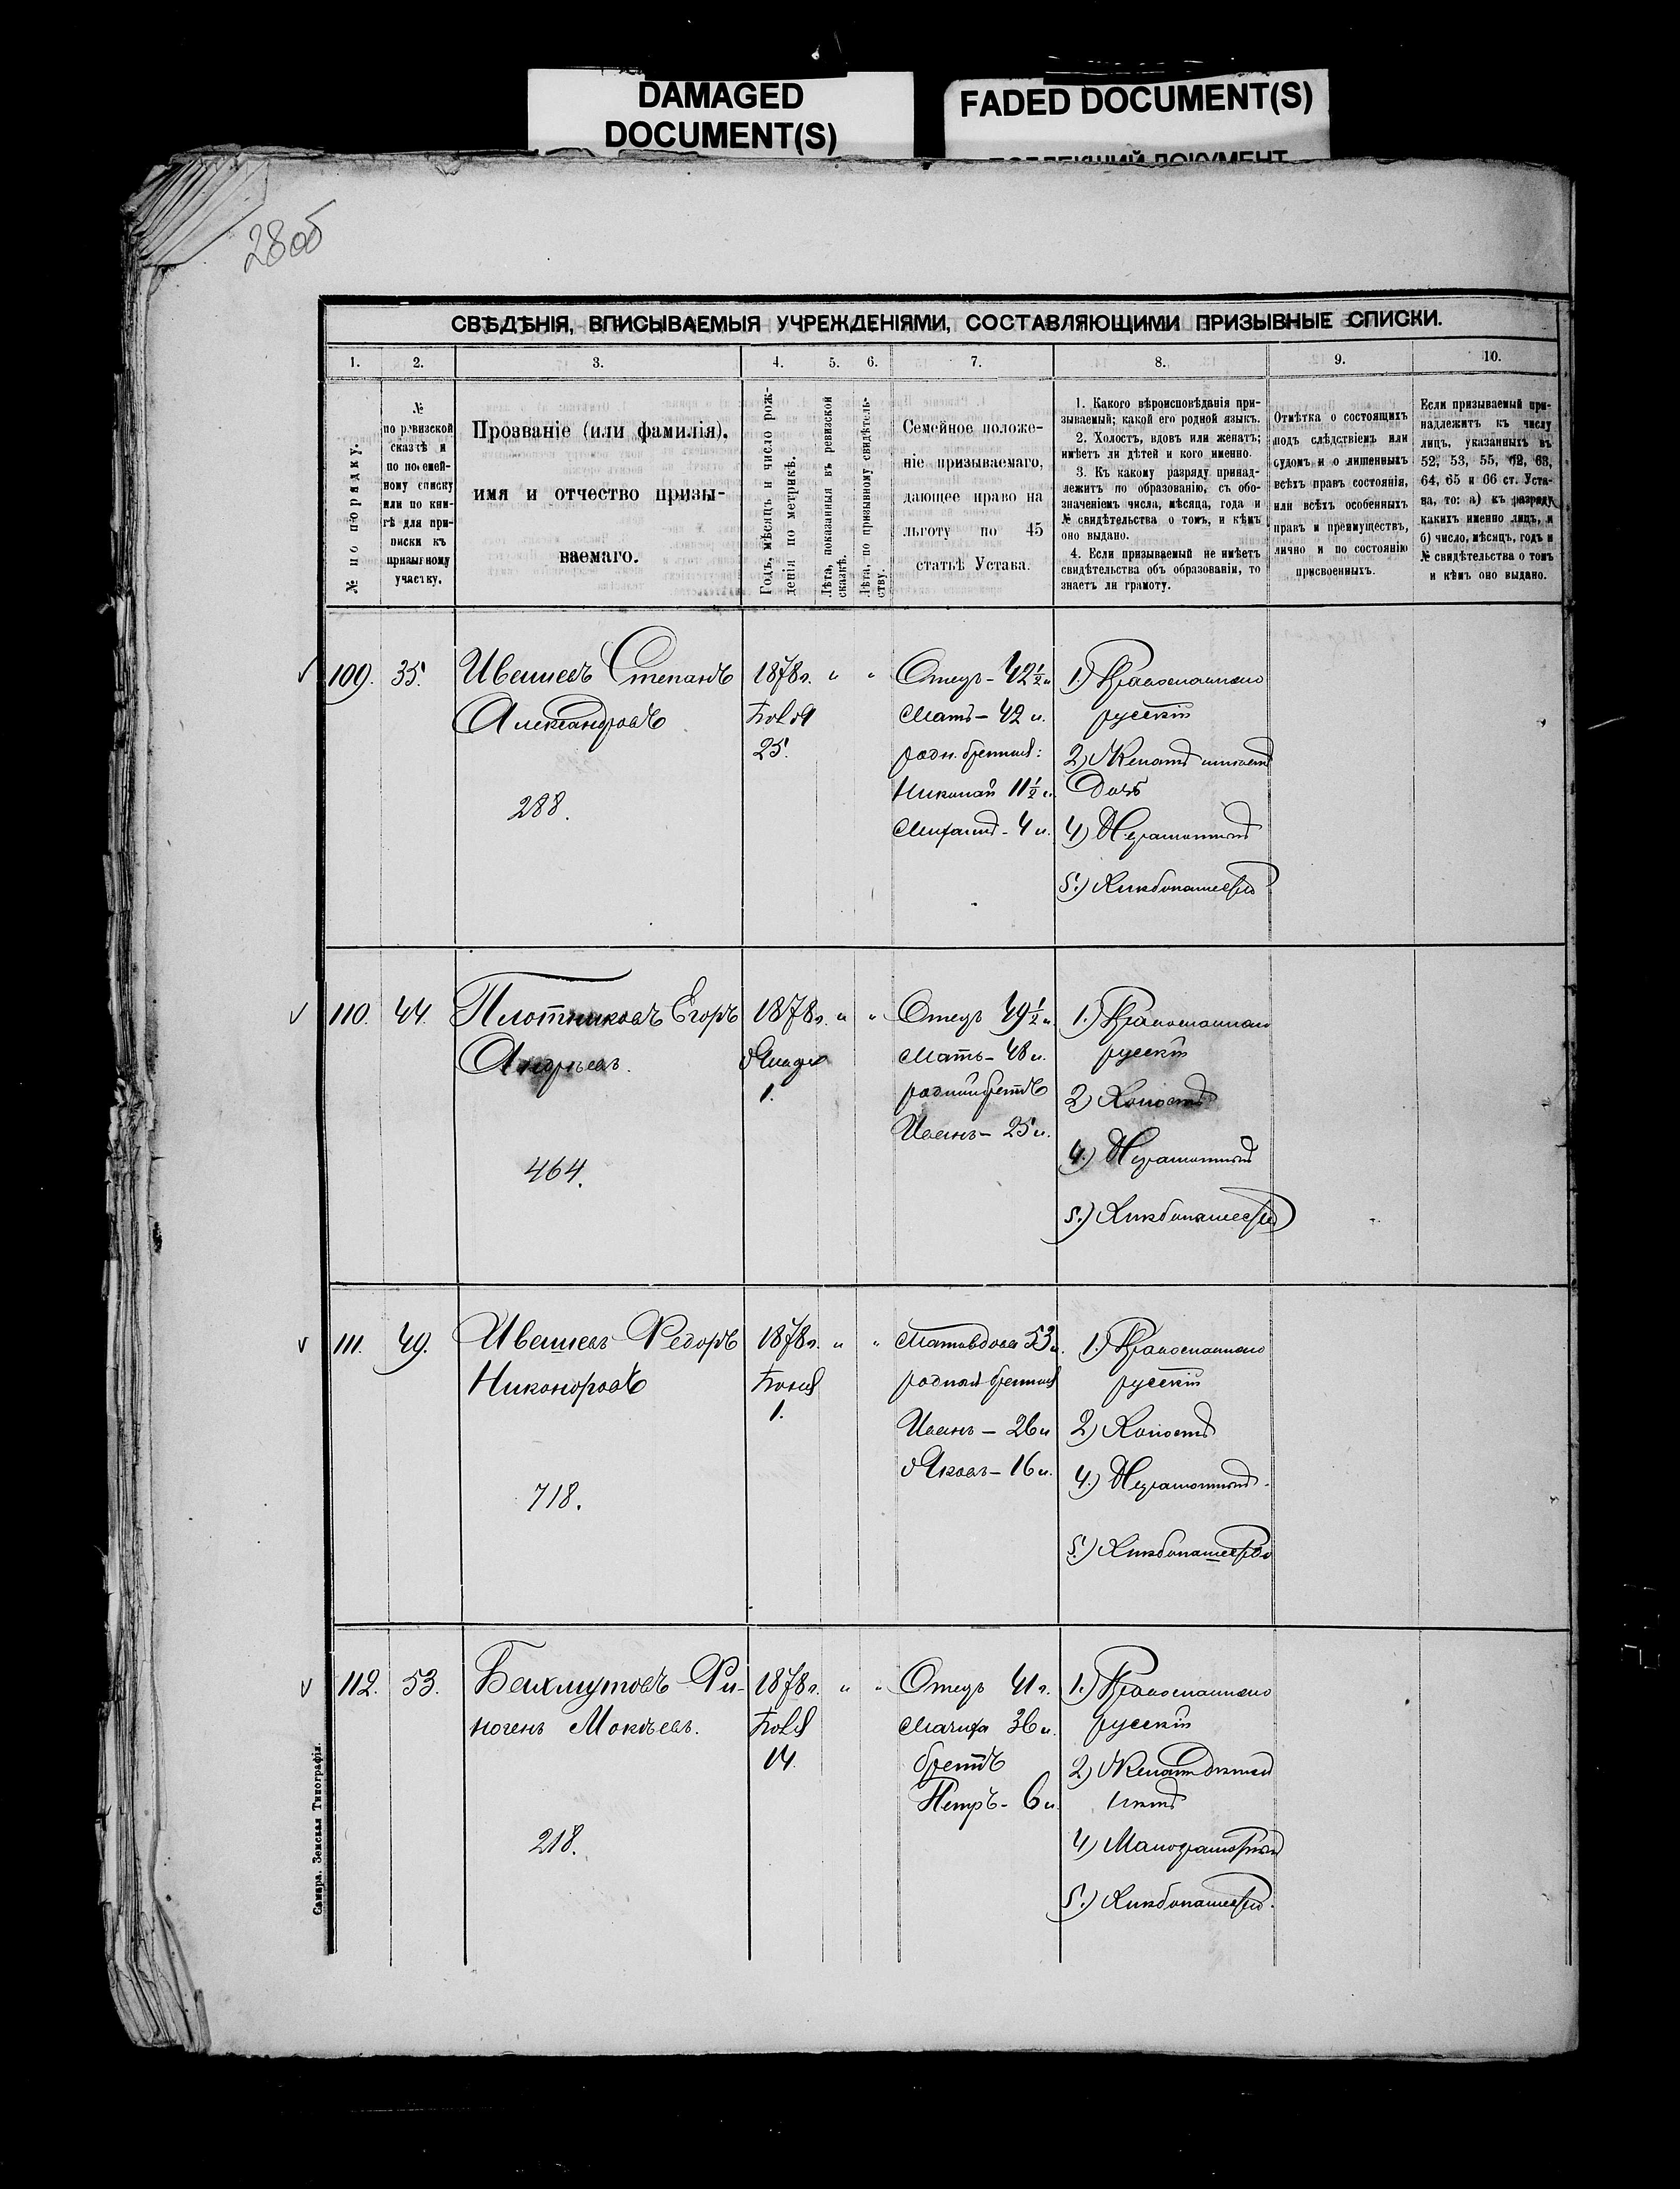 DAMAGED
DOCUMENT(S)
FADED DOCUMENT(S)
28об
СВѢДѢНІЯ, ВПИСЫВАЕМЫЯ УЧРЕЖДЕНІЯМИ, СОСТАВЛЯЮЩИМИ ПРИЗЫВНЫЕ СПИСКИ.
1. 2. 3. 4. 5. 6. 7. 8. 9. 10.
№ по порядку.
№
по ревизской
сказкѣ и
по посемей-
ному списку
или по кни-
гѣ для при-
писки къ
призывному
участку.
Прозваніе (или фамилія),
имя и отчество призы-
ваемаго.
Годъ, мѣсяцъ и число рож-
денія по метрикѣ.
Лѣта, показанныя въ ревизской
сказкѣ.
Лѣта, по призывному свидѣтель-
ству.
Семейное положе-
ніе призываемаго,
дающее право на
льготу по 45
статьѣ Устава.
1. Какого вѣроисповѣданія при-
зываемый; какой его родной языкъ.
2. Холостъ, вдовъ или женатъ;
имѣетъ ли дѣтей и кого именно.
3. Къ какому разряду принад-
лежитъ по образованію, съ обо-
значеніемъ числа, мѣсяца, года и
№ свидѣтельства о томъ, и кѣмъ
оно выдано.
4. Если призываемый не имѣетъ
свидѣтельства объ образованіи, то
знаетъ ли грамоту.
Отмѣтка о состоящихъ
подъ слѣдствіемъ или
судомъ и о лишенныхъ
всѣхъ правъ состоянія,
или всѣхъ особенныхъ
правъ и преимуществъ,
лично и по состоянію
присвоенныхъ.
Если призываемый при-
надлежитъ къ числу
лицъ, указанныхъ въ
52, 53, 55, 62, 63,
64, 65 и 66 ст. Уста-
ва, то: а) къ разряду
какихъ именно лицъ, и
б) число, мѣсяцъ, годъ и
№ свидѣтельства о томъ
и кѣмъ оно выдано.
109. 35. Ивашевъ Степанъ
Александровъ
288.
1878 г. " "
25.
Отецъ - 42 ½ л
Мать - 42 л.
родн. братья:
Николай 11 ½ л.
Михаилъ - 4 л.
1.) Православнаго
русскій
2) Женатъ имѣетъ
Дочь
4) Неграмотный
5.) Хлѣбопашество
110. 44. Плотниковъ Егоръ
Андреевъ.
464.
1878 г. " "
1.
Отецъ 49 ½ л.
Мать - 48 л.
родной братъ
Иванъ - 25 л.
1.) Православнаго
русскій
2) Холостъ
4.) Неграмотный
5.) Хлѣбопашество
111. 49. Ивашевъ Федоръ
Никоноровъ
718.
1878 г. " "
1.
Мать вдова 53 л.
родные братья
Иванъ - 26 л
Яковъ - 16 л.
1.) Православнаго
русскій
2) Холостъ
4.) Неграмотный.
5.) Хлѣбопашество
112. 53. Бахмутовъ
Мокѣевъ.
218.
1878 г. " "
14
Отецъ 41 г.
Мачиха 36 л.
братъ
Петръ - 6 л.
1.) Православнаго
русскій
2) Женатъ дѣтей
нѣтъ
4) Малограмотный
5.) Хлѣбопашество.
Самара. Земская Типографія.